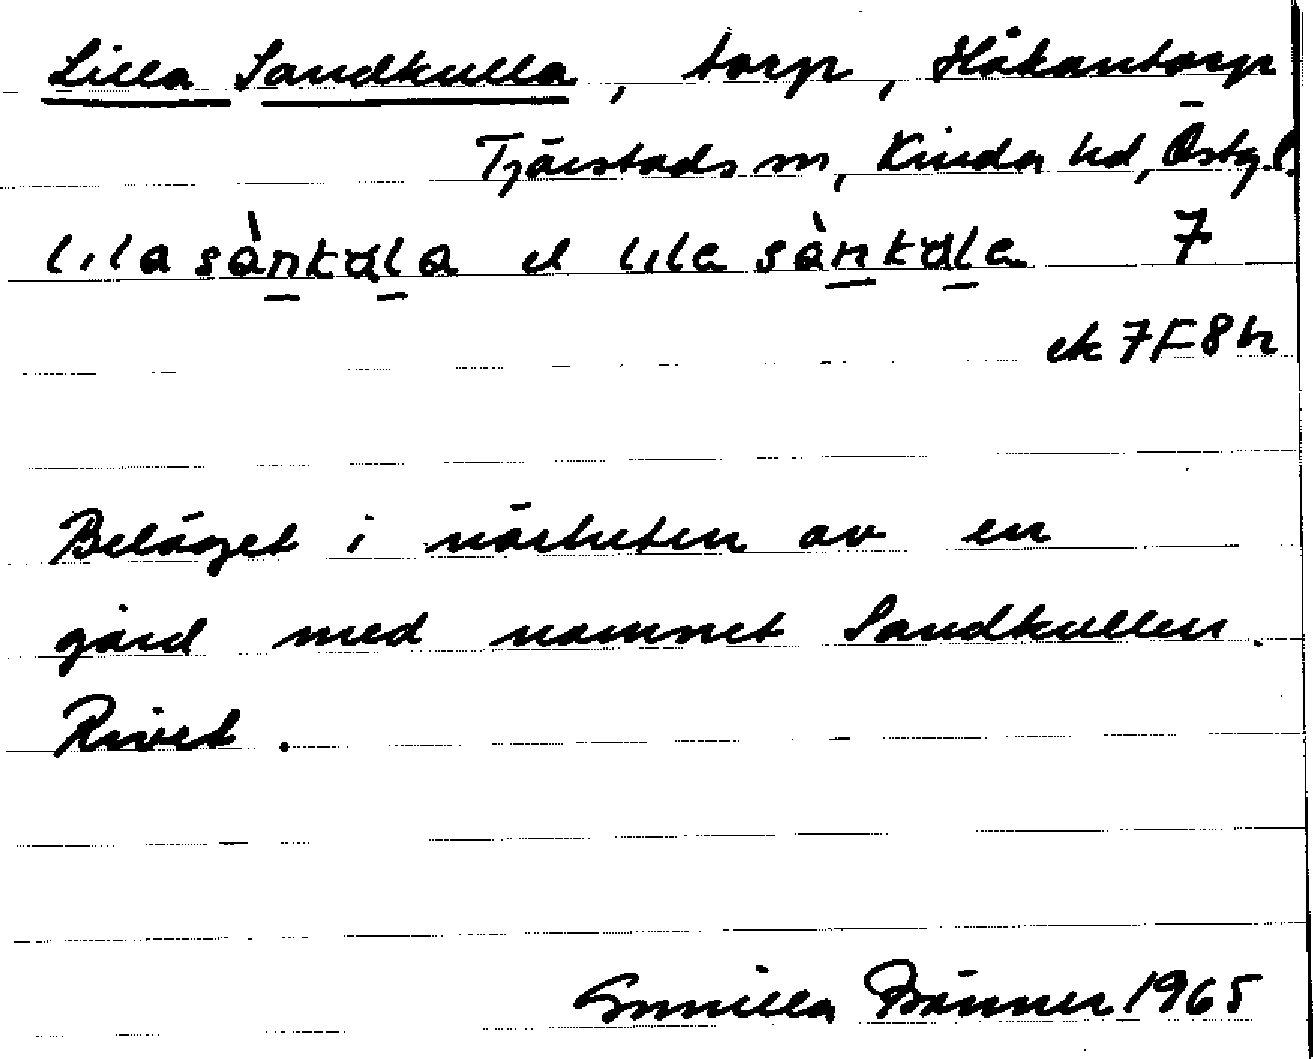 Lilla Sandkulla, torp, Håkantorp
Tjärstads sn, Kinda hd, Östg.l.
lıla sànkala el lıla sànkala 7
ek 7F8h
Beläget i närheten av en
gård med namnet Sandkullen.
Rivet.
Gunilla 1965